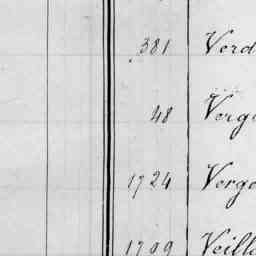 381 Verd
48 Verg
1724 Verge
1709 Veill